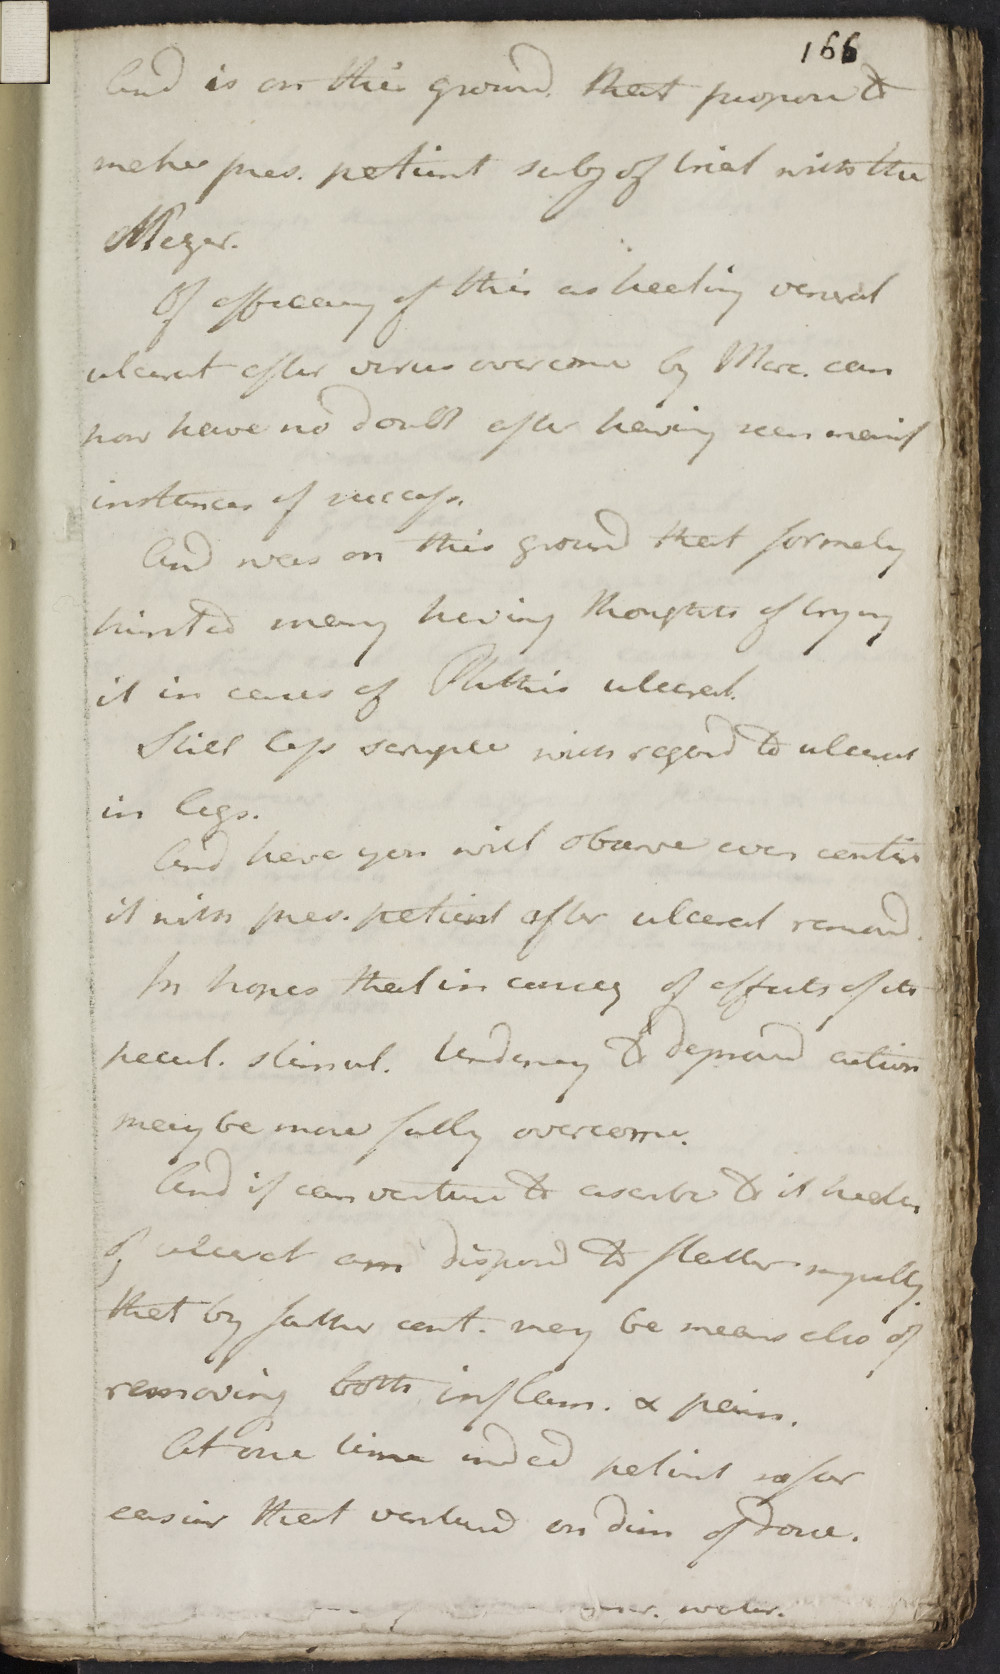 166
And is on this ground that propose to
make pres. patient subj of trial with the
Mezer.
Of efficacy of this as healing venereal
ulcerat after virus overcome by Merc. can
now have no doubt after having seen many
instances of success.
And was on this ground that formerly
hinted many having thoughts of trying
it in cases of Phthisis ulcerat.
Still less scruple with regard to ulcerat
in legs.
And here you will observe even contin
it with pres. patient after ulcerat remov'd.
In hopes that in conseq of effects of its
pecul. stimul. tendency to depraved action
may be more fully overcome.
And if can venture to ascribe to it healing
of ulcerat am dispos'd to flatter myself
that by farther cont. may be means also of
removing both inflam. & pain.
At one time indeed patient so far
easier that ventured on dim of dose.
water.